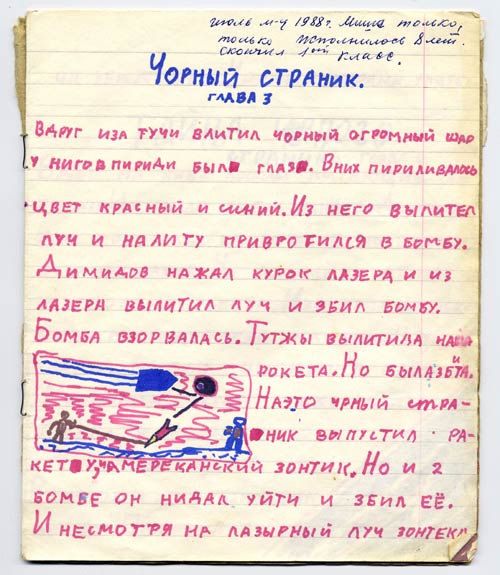 июль м-ц 1988г. Миша только,
только исполнилось 8 лет.
скончил 1ый класс.
Чорный страник.
глава 3
Вдруг иза тучи влитил чорный огромный шар
у нигов пириди были глаза. Вних пириливалось
цвет красный и синий. Из него вылител
луч и налиту привротился в бомбу.
Димидов нажал курок лазера и из
лазера вылитил луч и збил бомбу.
Бомба взорвалась. Тутжы вылитила наша
рокета. Но былазбита.
Наэто чрный стра-
ник выпустил ра-
кету, на американский зонтик. Но и 2
бомбе он нидал уйти и збил её.
И несмотря на лазырный луч зонтека